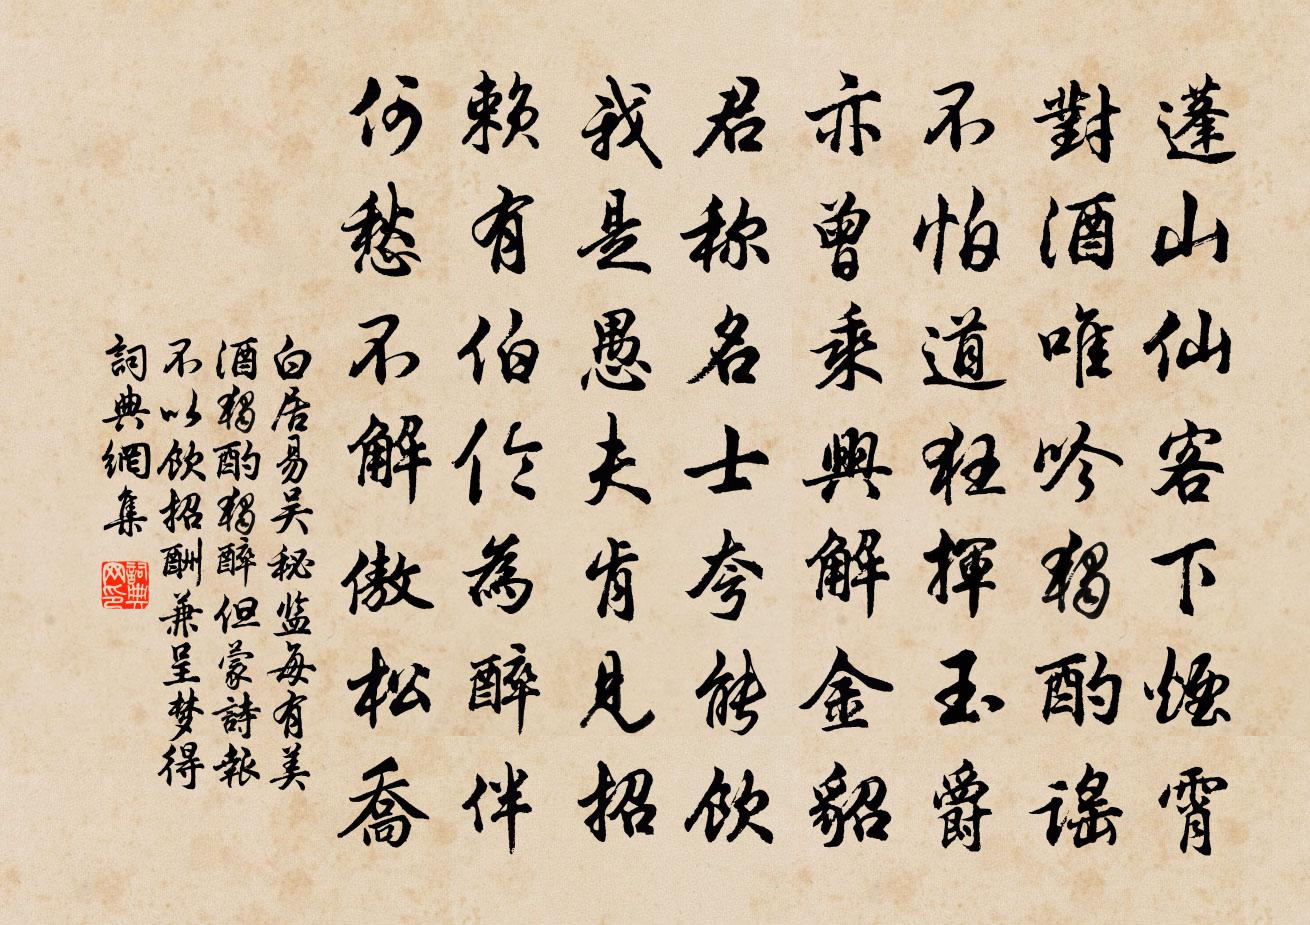 蓬山仙客下煙霄
對酒唯吟獨酌謠
不怕道狂揮玉爵
亦曾乘興解金貂
君称名士夸能飲
我是愚夫肯見招
賴有伯伦為醉伴
何愁不解傲松喬
白居易吴秘监每有美
酒獨酌獨醉但蒙詩報
不以飲招酬兼呈梦得
詞典網集
詞典网印